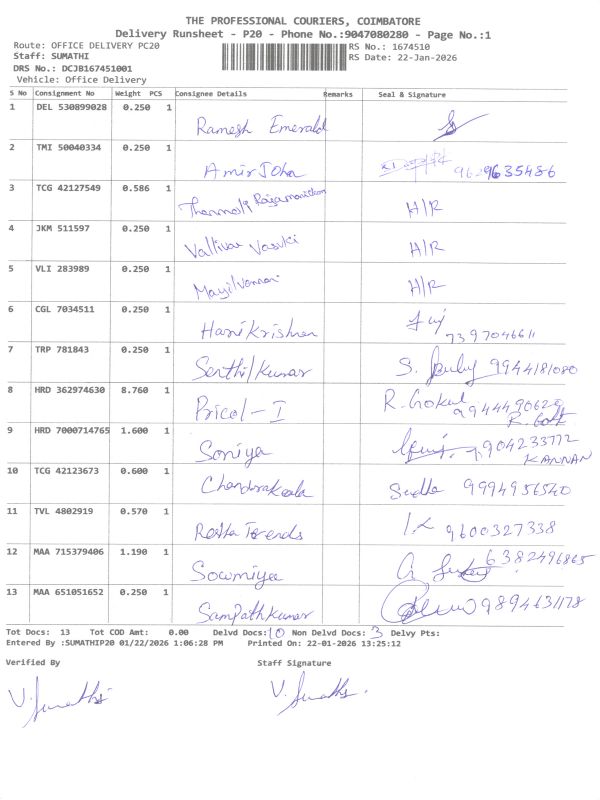 THE PROFESSIONAL COURIERS, COIMBATORE
Delivery Runsheet - P20 - Phone No.:9047080280 - Page No.:1
Route: OFFICE DELIVERY PC20
RS No.: 1674510
Staff: SUMATHI
RS Date: 22-Jan-2026
DRS No.: DCJB167451001
Vehicle: Office Delivery
S No Consignment No Weight PCS Consignee Details Remarks Seal & Signature
1 DEL 530899028 0.250 1
Ramesh Emerald
2 TMI 50040334 0.250 1
Amir Joha 9629635486
3 TCG 42127549 0.586 1
H/R
4 JKM 511597 0.250 1
Vallivar Vasuki H/R
5 VLI 283989 0.250 1
Mayilvannan H/R
6 CGL 7034511 0.250 1
Harikrishnan 7397046611
7 TRP 781843 0.250 1
Senthilkumar S. 9944181080
8 HRD 362974630 8.760 1
Pricol - I R. Gokul 9944490629
9 HRD 7000714765 1.600 1
Soniya 7904233772
KANNAN
10 TCG 42123673 0.600 1
Chandrakala Sudha 9994956540
11 TVL 4802919 0.570 1
Trends 9600327338
12 MAA 715379406 1.190 1
Sowmiya 6382496865
13 MAA 651051652 0.250 1
Sampathkumar 9894631178
Tot Docs: 13 Tot COD Amt: 0.00 Delvd Docs: 10 Non Delvd Docs: 3 Delvy Pts:
Entered By :SUMATHIP20 01/22/2026 1:06:28 PM Printed On: 22-01-2026 13:25:12
Verified By Staff Signature
V. Sumathi V. Sumathi.